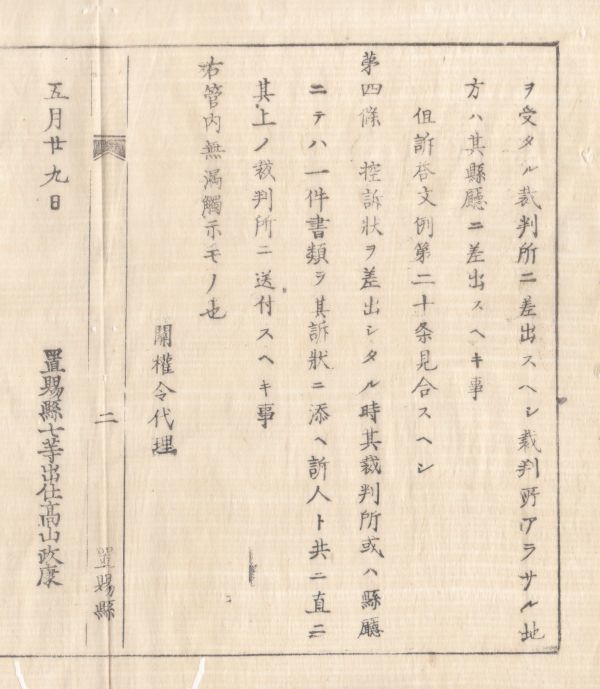 ヲ受タル裁判所ニ差出スヘシ裁判所アラサル地
方ハ其縣廳ニ差出スヘキ事
但訴答文例第二十条見合スヘシ
第四條　控訴狀ヲ差出シタル時其裁判所或ハ縣廳
ニテハ一件書類ヲ其訴狀ニ添ヘ訴人ト共ニ直ニ
其上ノ裁判所ニ送付スヘキ事
右管内無漏觸示モノ也
關權令代理
二
置賜縣
五月廿九日
置賜縣七等出仕髙山政康